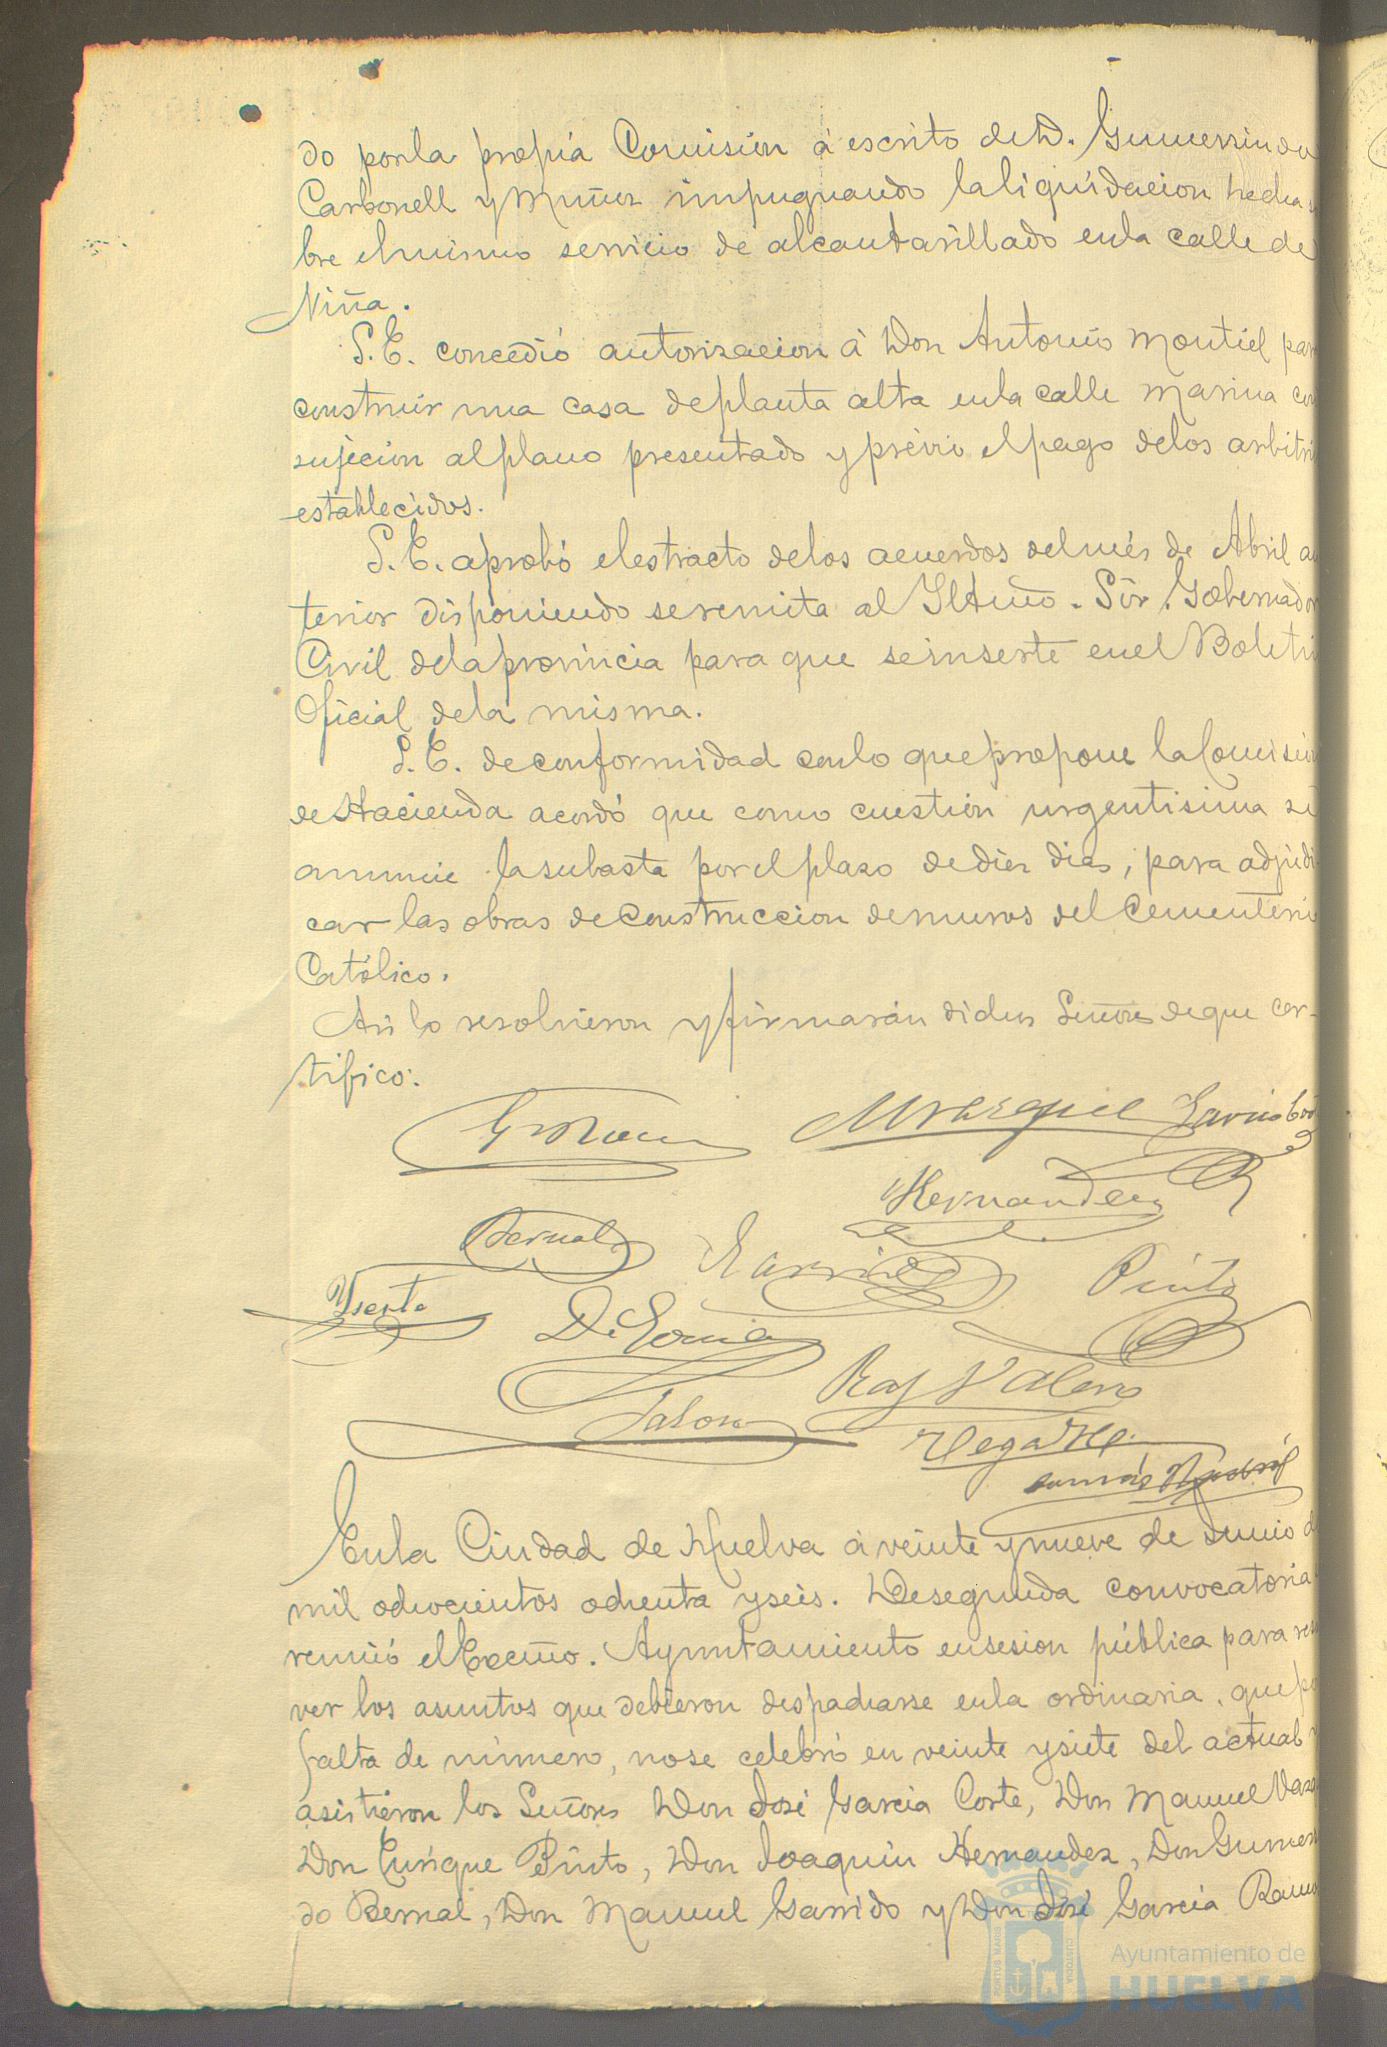 do por la propia Comision á escrito de D. Gumersindo
Carbonell y Muñoz impugnando la liquidacion hecha
bre el mismo servicio de alcantarillado en la calle de
Niña.
S.E. concedió autorizacion á Don Antonio Montiel para
construir una casa de planta alta en la calle Marina con
sujecion al plano presentado y prévio el pago de los arbitri
establecidos.
S.E. aprobó el estracto de los acuerdos del més de Abril an
terior disponiendo se remita al Yltmo. Sór. Gobernador
Civil de la provincia para que se inserte en el Boletin
Oficial de la misma.
S.E. de conformidad con lo que propone la Comision
de Hacienda acordó que como cuestión urgentisima se
anuncie la subasta por el plazo de diez dias, para adjudi
car las obras de construccion de muros del Cementerio
Católico.
Asi lo resolvieron y firmarán dichos Señores de que cer-
tifico.
Hernandez
Bernal Garrido Pinto
Yserte
Vega
En la Ciudad de Huelva á veinte y nueve de Junio d
mil ochocientos ochenta y seis. De segunda convocatoria
reunió el Excmo. Ayuntamiento en sesion pública para reso
ver los asuntos que debieron despacharse en la ordinaria, que po
falta de número, no se celebró en veinte y siete del actual
asistieron los Señores Don José Garcia Corte, Don Manuel Vazq
Don Enrique Pinto, Don Joaquin Hernandez, Don Gumers
do Bernal, Don Manuel Garrido y Don José Garcia Ramo
PORTUS MARIS CUSTODIA
Ayuntamiento de
HUELVA